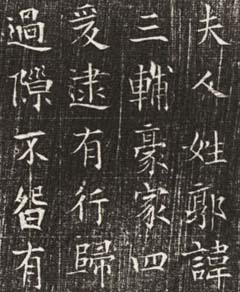 夫人姓郭諱
三輔豪家四
爰逮有行歸
過隙不留有